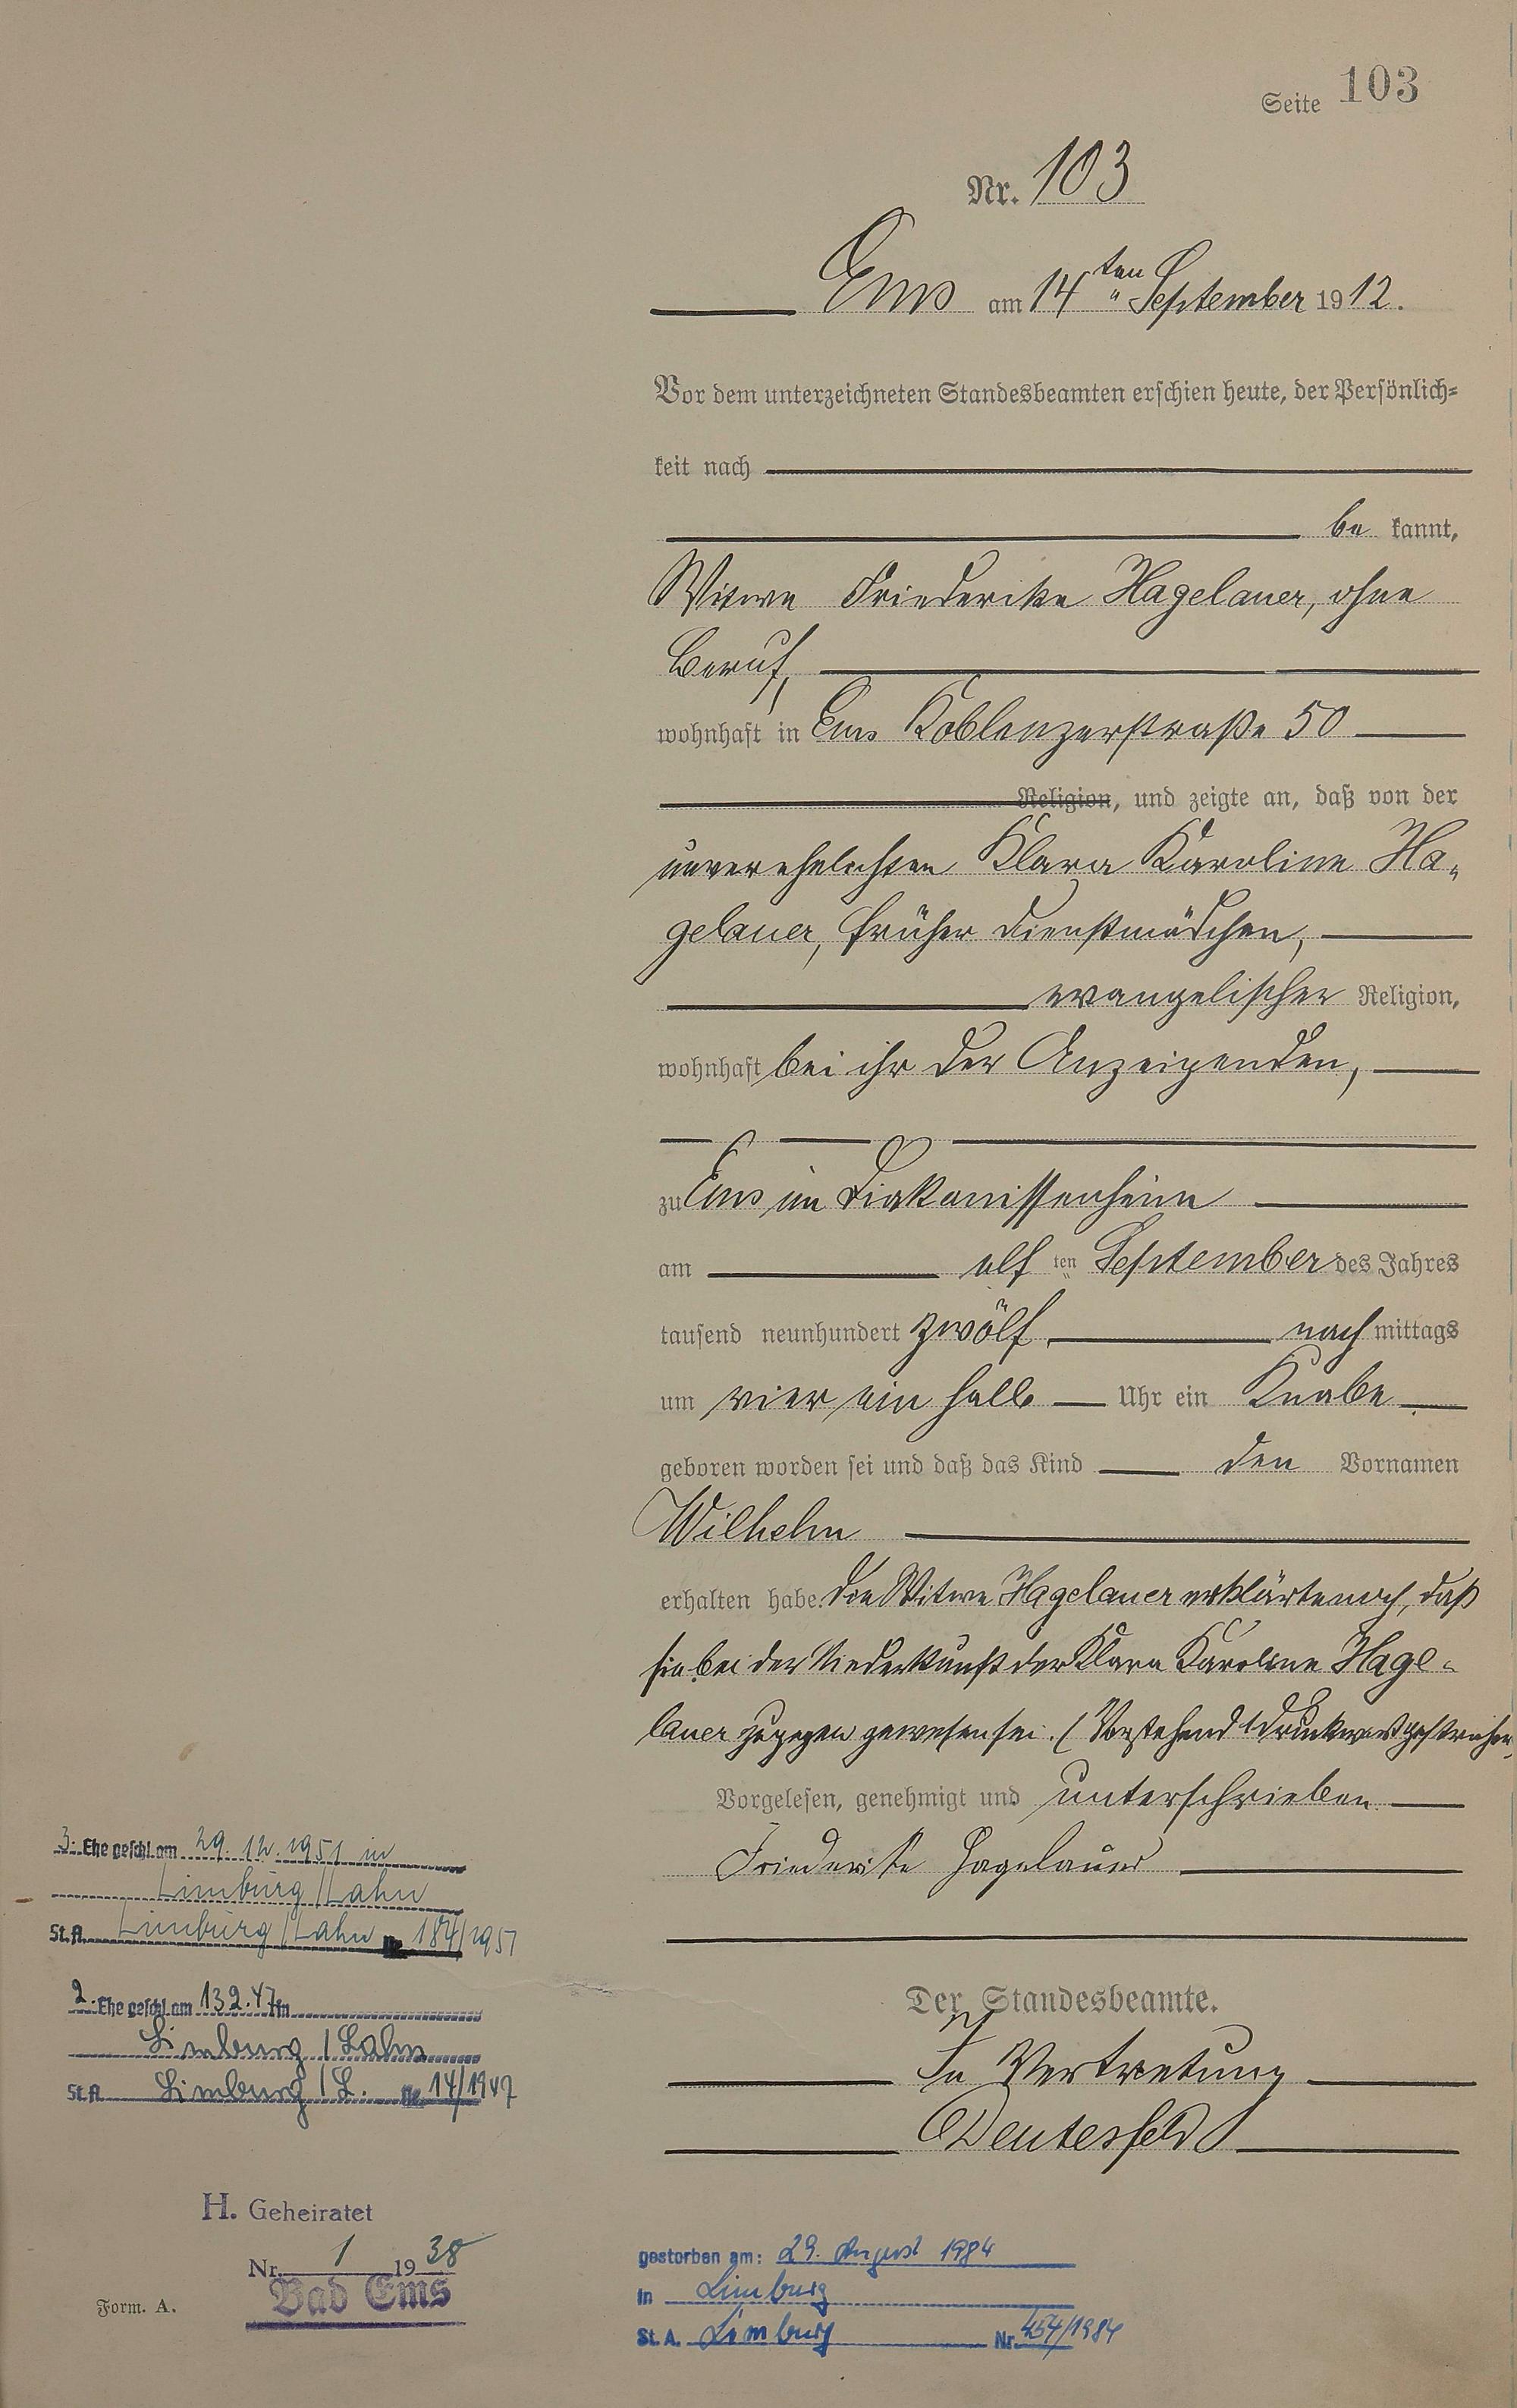 Seite 103
Nr. 103
Ems am 14ten September 1912.
Vor dem unterzeichneten Standesbeamten erschien heute, der Persönlich-
keit nach
be kannt,
Witwe Friederike Hagelauer, ohne
Beruf,
wohnhaft in Ems Koblenzerstraße 50
Religion, und zeigte an, daß von der
unverehelichten Klara Karoline Ha-
gelauer, früher Dienstmädchen,
evangelischer Religion,
wohnhaft bei ihr der Anzeigenden,
zu Ems im Diakonissenheim
am elf ten September des Jahres
tausend neunhundert zwölf nach mittags
um vier ein halb Uhr ein Knabe
geboren worden sei und daß das Kind den Vornamen
Wilhelm
erhalten habe. Die Witwe Hagelauer erklärte noch, daß
sie bei der Niederkunft der Klara Karoline Hage-
lauer zugegen gewesen sei. (Vorstehend 1 Druckwort gestrichen)
Vorgelesen, genehmigt und unterschrieben
Friederike Hagelauer
Der Standesbeamte.
In Vertretung
3. Ehe geschl. am 29.12.1951 in
Limburg/Lahn
St.A. Limburg/Lahn Nr. 184/1951
2. Ehe geschl. am 13.2.47 in
Limburg / Lahn
St.A. Limburg / L. Nr. 14/1947
H. Geheiratet
Nr. 1 1938
Bad Ems
Form. A.
gestorben am: 29. August 1984
in Limburg
St. A. Limburg Nr. 454/1984